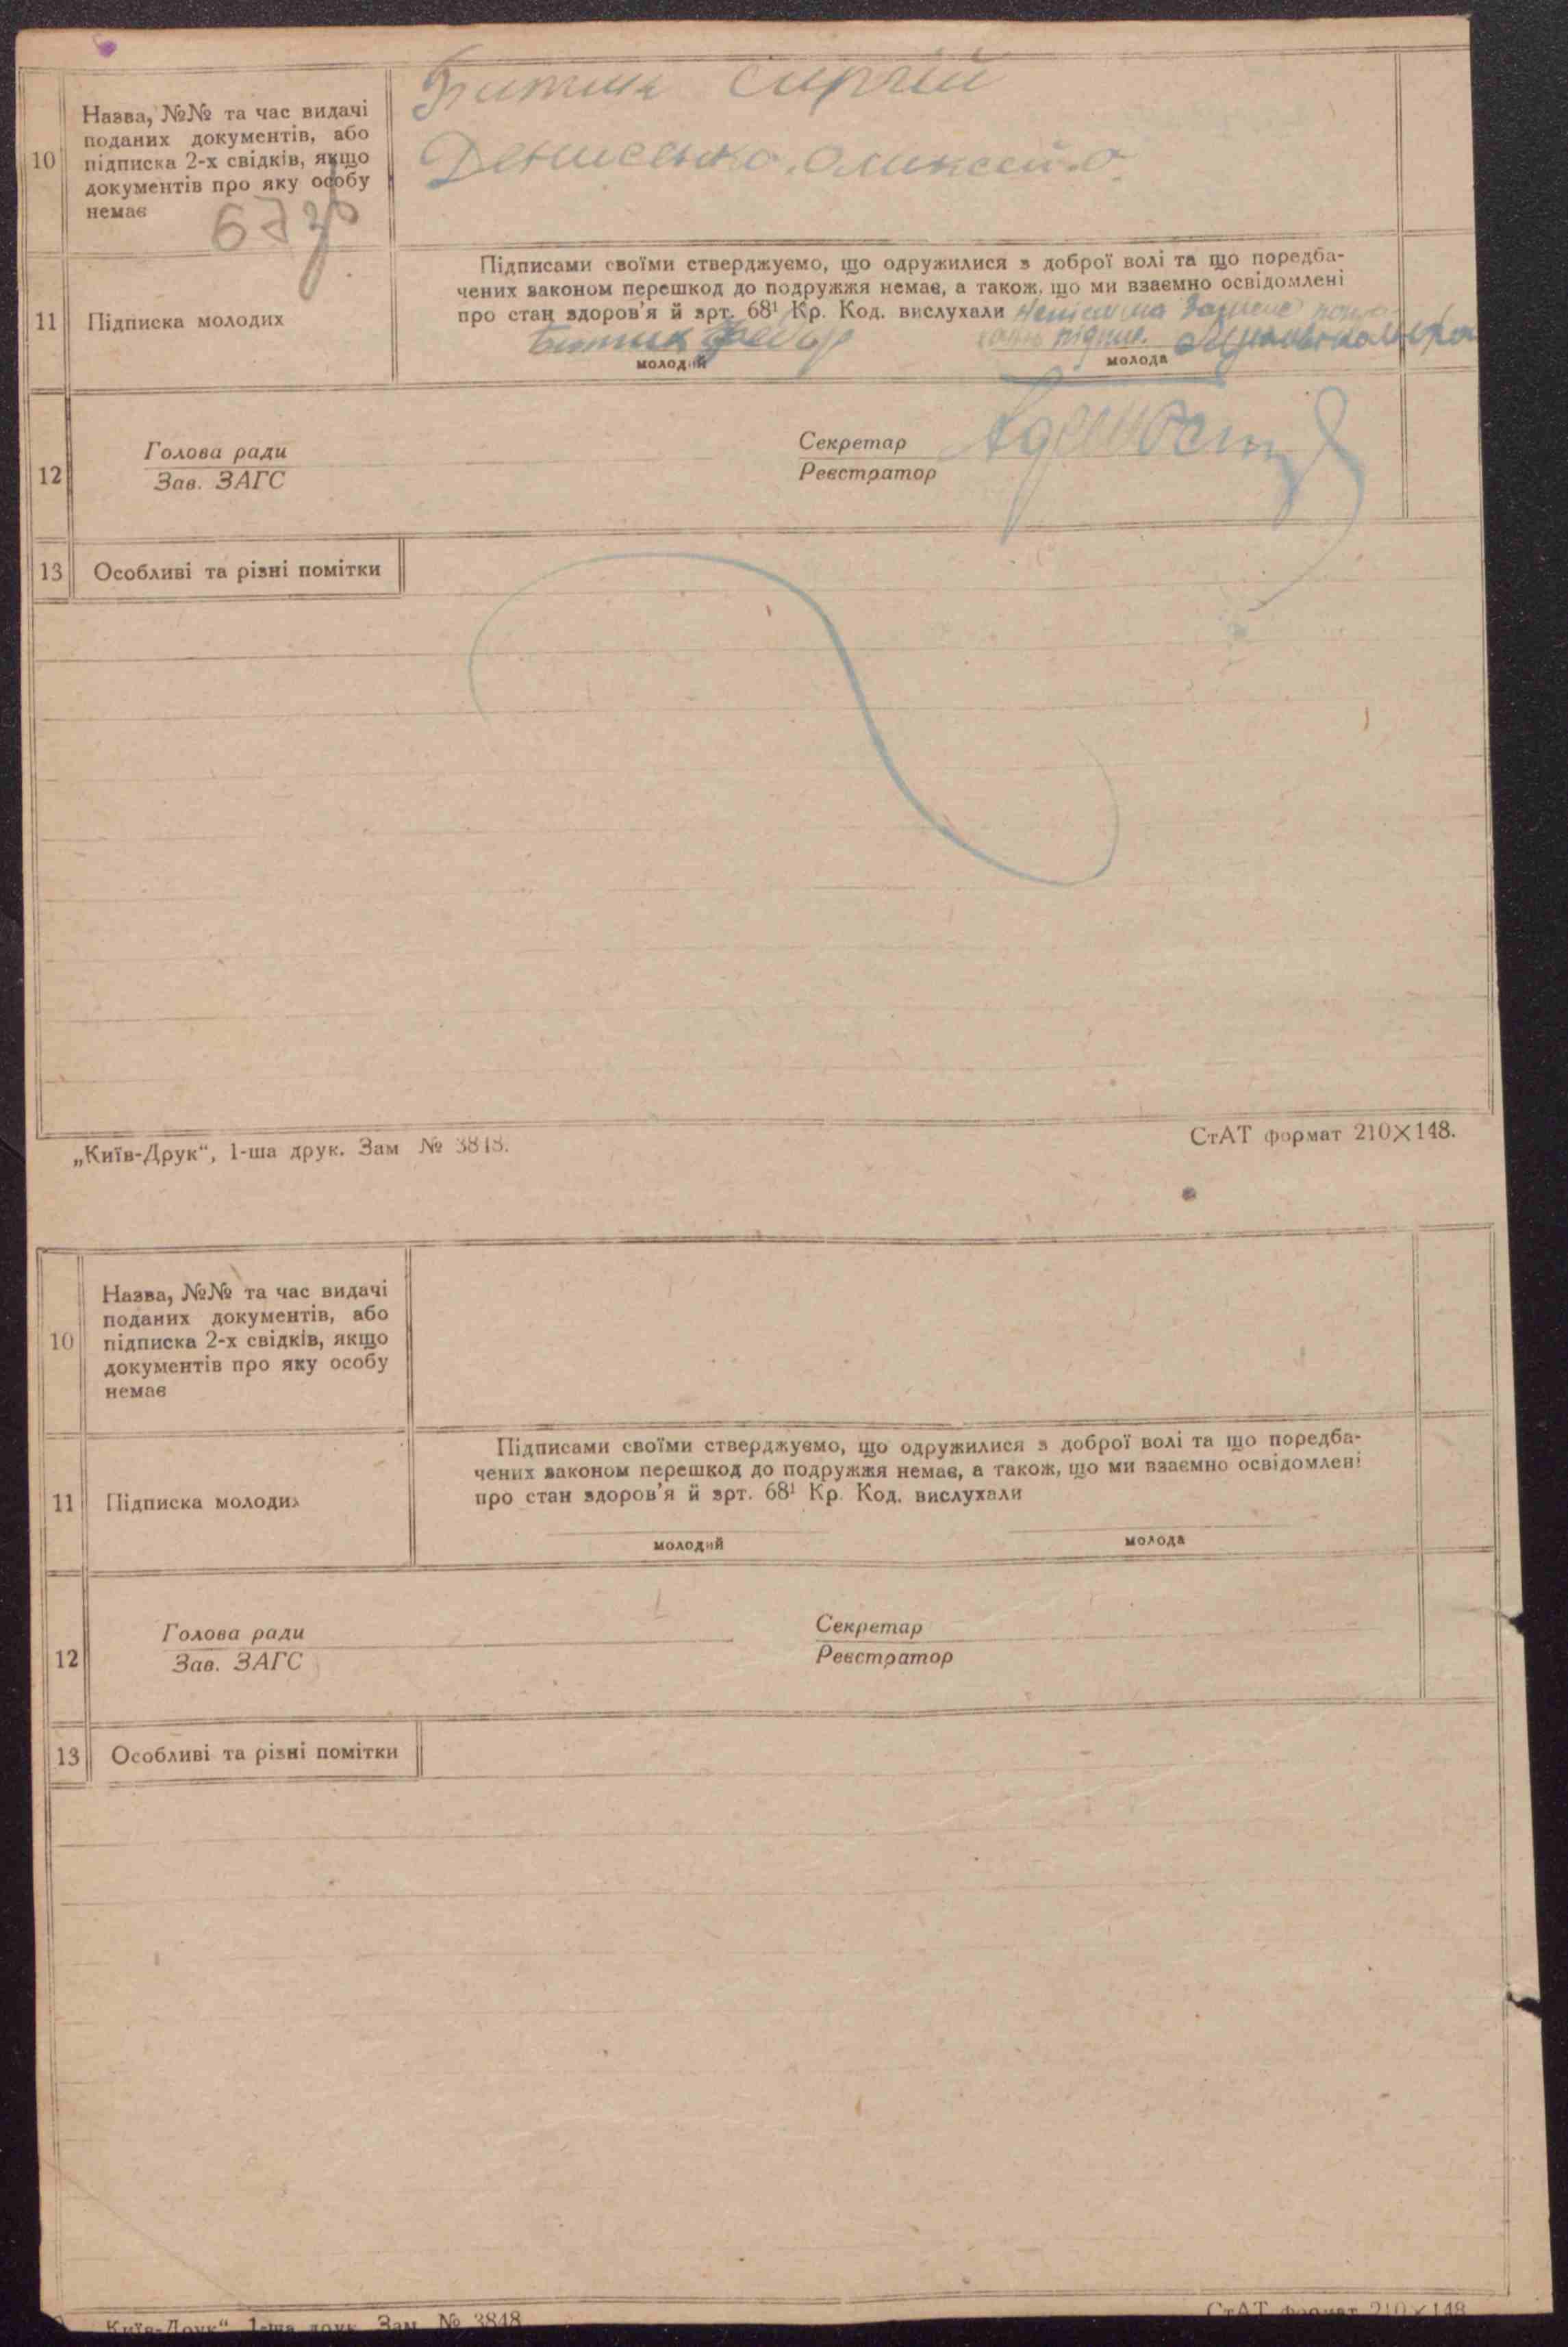 10
Назва, №№ та час видачі
поданих документів, або
підписка 2-х свідків, якщо
документів про яку особу
немає
Битик Сиргій
Денисенко
11
Підписка молодих
Підписами своїми стверджуємо, що одружилися з доброї волі та що поредба-
чених законом перешкод до подружжя немає, а також, що ми взаємно освідомлені
про стан здоров'я й арт. 68¹ Кр. Код. вислухали
Битик
молодий
молода
12
Голова ради
Зав. ЗАГС
Секретар
Реєстратор
13
Особливі та різні помітки
„Київ-Друк“, 1-ша друк. Зам № 3848.
СтАТ формат 210×148.
10
Назва, №№ та час видачі
поданих документів, або
підписка 2-х свідків, якщо
документів про яку особу
немає
11
Підписка молодих
Підписами своїми стверджуємо, що одружилися з доброї волі та що поредба-
чених законом перешкод до подружжя немає, а також, що ми взаємно освідомлені
про стан здоров'я й арт. 68¹ Кр. Код. вислухали
молодий
молода
12
Голова ради
Зав. ЗАГС
Секретар
Реєстратор
13
Особливі та різні помітки
Київ-Друк“ 1-ша друк. Зам. № 3848
СтАТ формат 210×148